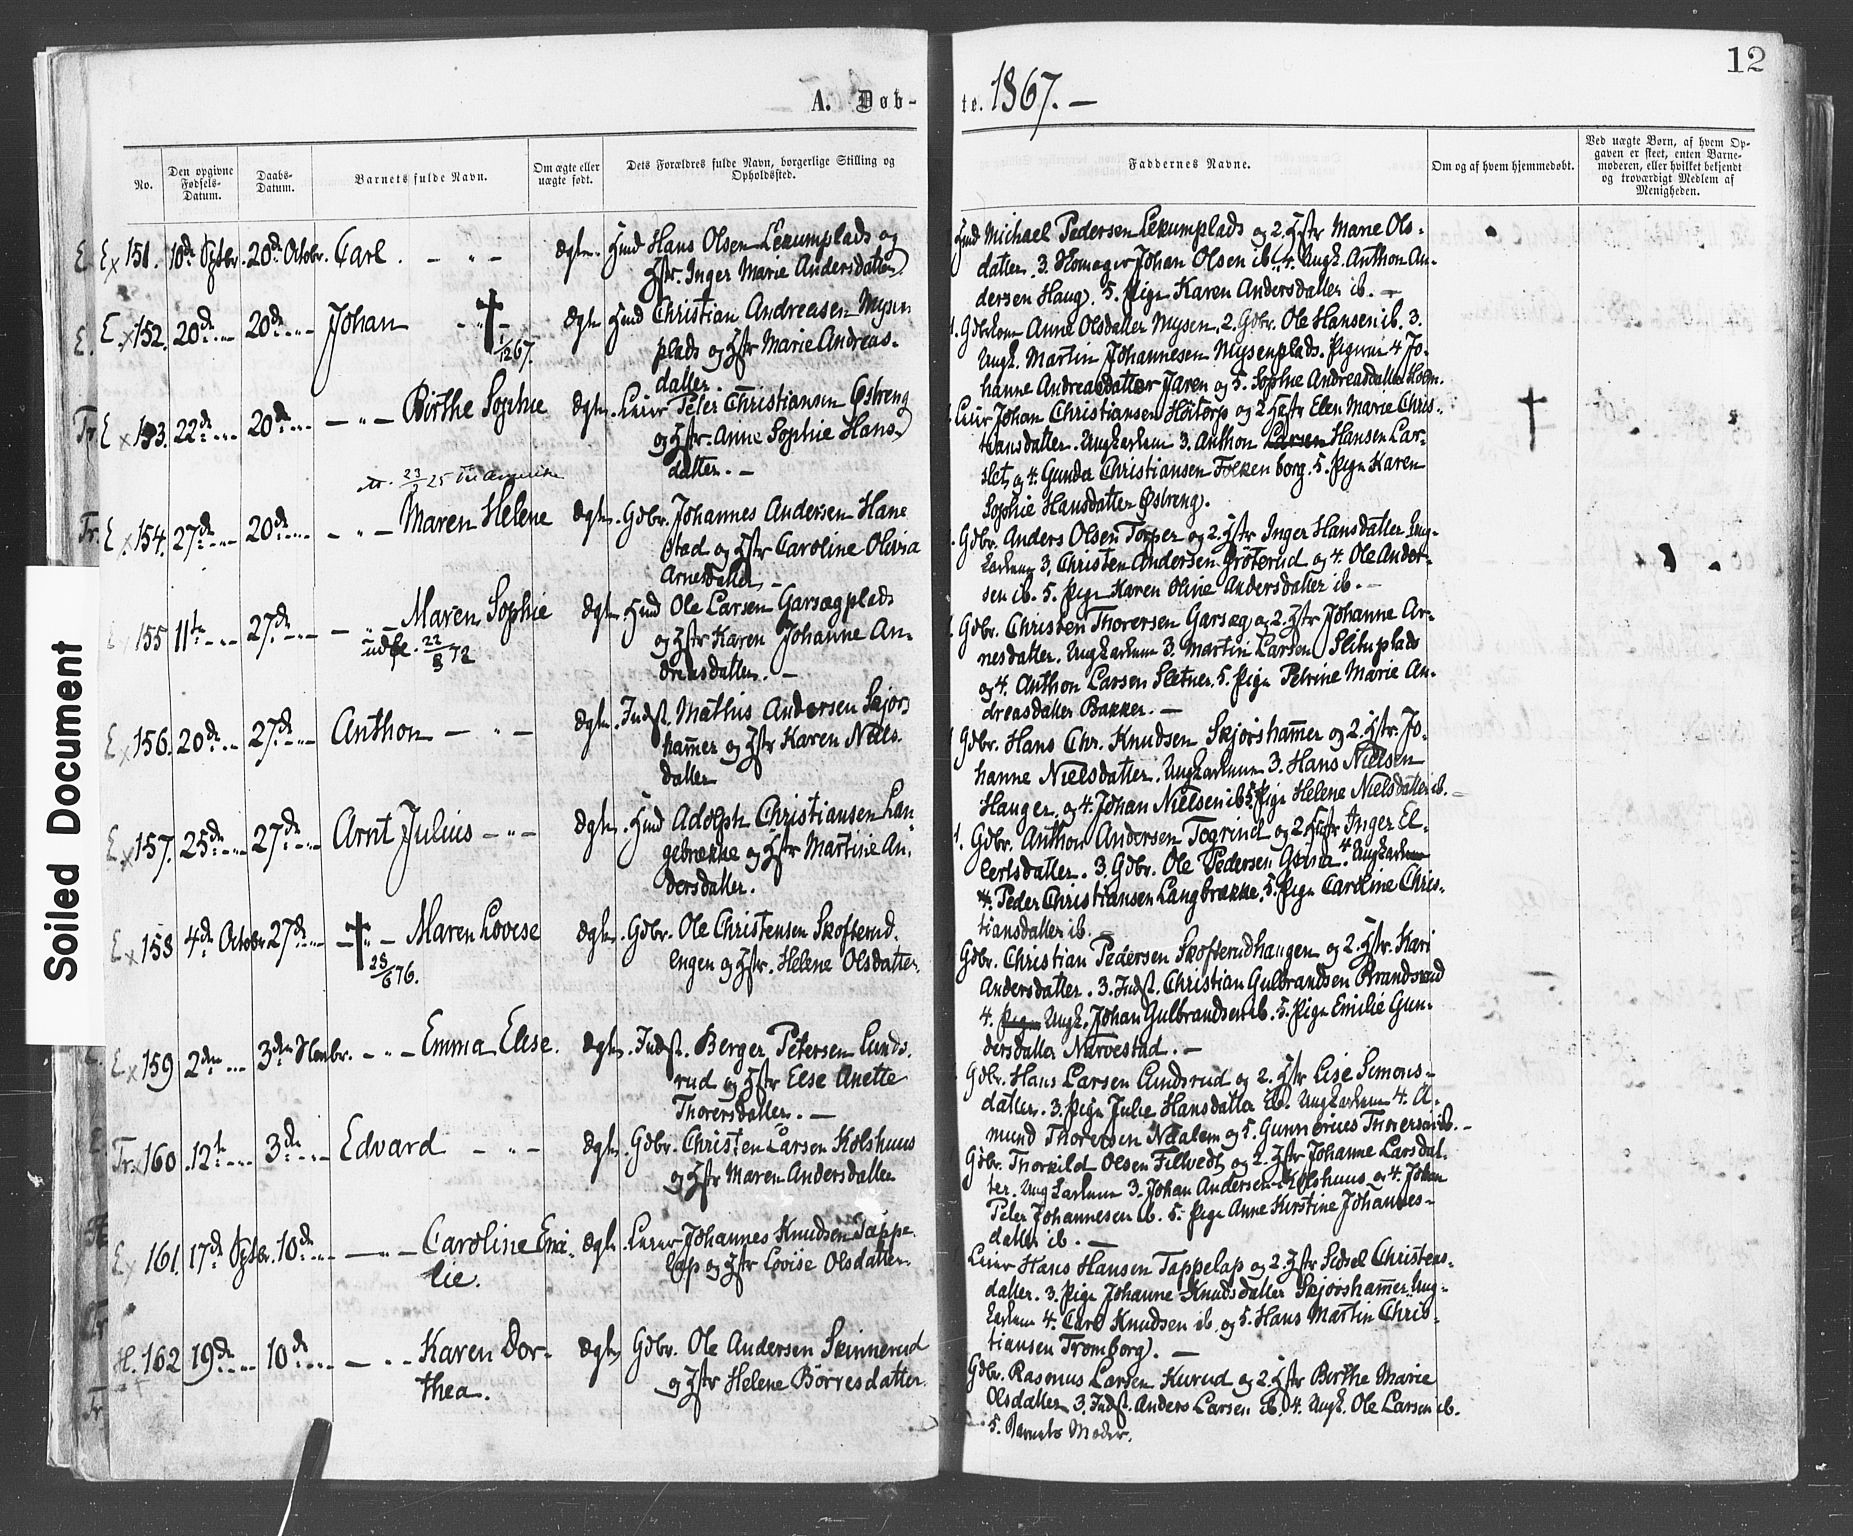 12
A. Døb-
te. 1867. —
No.
Den opgivne Fødsels-Datum.
Daabs-Datum.
Barnets fulde Navn.
Om ægte eller uægte født.
Dets Forældres fulde Navn, borgerlige Stilling og Opholdssted.
Faddernes Navne.
Om og af hvem hjemmedøbt.
Ved uægte Børn, af hvem Opgaven er skeet, enten Barnemoderen, eller hvilket bekjendt og troværdigt Medlem af Menigheden.
Soiled Document
E. Ex 151. 10de Septbr. 20de Octobr. Carl. — " — ægte. Hmd Hans Olsen Lekumplads og
Hstr. Inger Marie Andersdatter
Hmd Michael Pedersen Lekumplads og 2. Hstr Marie Ols-
datter. 3. Johan Olsen ib. 4. Ungk. Anthon An-
dersen Haug. 5. Pige Karen Andersdatter ib. —
E. Ex 152. 20de " 20de " Johan — " — ægte Hmd Christian Andreasen Mysen
1/12 67.
plads og Hstr Marie Andreas-
datter.
1. Gdbrkone Anne Olsdatter Mysen. 2. Gdbr. Ole Hansen ib. 3.
Ungk. Martin Johannesen Mysenplads. Pigerne 4 Jo-
hanne Andreasdatter Jaren og 5. Sophie Andreasdatter Holm.
Tr. Ex 153. 22de " 20de " — " — Birthe Sophie ægte. Leier Peter Christiansen Østreng
og Hstr. Anne Sophie Hans-
datter. —
Leier Johan Christiansen Høitorp og 2 Hstr Elen Marie Chris-
tiansdatter. Ungkarlene 3. Anthon Larsen Hansen Lar-
slet og 4. Gunder Christiansen Folkenborg. 5. Pige Karen
Sophie Hansdatter Østreng.
Tr. Ex 154. 27de " 20de " — " — Maren Helene ægte. Gdbr. Johannes Andersen Hane
stad og Hstr Caroline Olivia
Arnesdatter —
Gdbr. Anders Olsen Torper og 2. Hstr Inger Hansdatter Ung-
karlene 3. Christen Andersen Grøterud og 4. Ole Ander-
sen ib. 5. Pige Karen Oline Andersdatter ib. —
155 11te " 27de " — " — Maren Sophie ægte Hmd Ole Larsen Garsegplads
udfl. 22/3 72
og Hstr Karen Johanne An-
dreasdatter. —
Gdbr. Christen Thoresen Garseg og 2. Hstr Johanne Ar-
nesdatter. Ungkarlene 3. Martin Larsen Slituplads
og 4. Anthon Larsen Sletner. 5. Pige Petrine Marie An-
dreasdatter Bakker. —
Ex 156. 20de " 27de " Anthon — " — ægte. Indst. Mathis Andersen Skjørs
hammer og Hstr Karen Niels-
datter
Gdbr. Hans Chr. Knudsen Skjørshammer og 2. Hstr. Jo-
hanne Nielsdatter. Ungkarlene 3. Hans Nielsen
Hauger og 4. Johan Nielsen ib 5. Pige Helene Nielsdatter ib.
Ex 157. 25de " 27de " Arnt Julius — " — ægte. Hmd Adolph Christiansen Lan-
gebrække og Hstr Martine An-
dersdatter.
1. Gdbr. Anthon Andersen Togrind og 2. Hstr Inger El-
lertsdatter. 3. Gdbr. Ole Pedersen 4 Ungkarlene
4. Peder Christiansen Langbrække. 5. Pige Caroline Chris-
tiansdatter ib. —
Ex 158 4de Octobr 27de " — " — Maren Lovise ægte. Gdbr. Ole Christensen Skofterud-
28/6 76.
engen og Hstr. Helene Olsdatter.
Gdbr. Christian Pedersen Skofterudhaugen og 2. Hstr. Kari
Andersdatter. 3. Indst. Christian Gulbrandsen Brandsrud
4. Pige Ungk. Johan Gulbrandsen ib. 5. Pige Emilie Gun-
dersdatter Narvestad. —
Ex 159 2den " 3den Novbr. — " — Emma Elise. ægte. Indst. Berger Petersen Lunds-
rud og Hstr Else Anette
Thorersdatter. —
Gdbr. Hans Larsen Lundsrud og 2. Hstr Lise Simons-
datter. 3. Pige Julie Hansdatter ib. Ungkarlene 4. A-
mund Thoresen Naalem og 5. Gunnerius Thoresen ib. —
Tr. 160. 12te " 3de " Edvard — " — ægte. Gdbr. Christen Larsen Kolshuus
og Hstr Maren Andersdatter
Gdbr. Thorkild Olsen Fillvedt og 2. Hstr Johanne Larsdat-
ter. Ungkarlene 3. Johan Andersen Kolshuus og 4. Johan
Peter Johannesen ib. 5. Pige Anne Kirstine Johannes-
datter ib. —
Ex 161. 17de Septbr. 10de " — " — Caroline Emi- ægte. Leier Johannes Knudsen Tappe-
lie.
lap og Hstr Lovise Olsdatter.
Leier Hans Hansen Tappelap og 2. Hstr Sidsel Christens-
datter. 3. Pige Johanne Knudsdatter Skjørshammer. Ung-
karlene 4. Carl Knudsen ib. og 5. Hans Martin Chris-
tiansen Tromborg. —
H. 162 19de " 10de " — " — Karen Dor- ægte. Gdbr. Ole Andersen Skinnerud
thea.
og Hstr Helene Børresdatter.
Gdbr. Rasmus Larsen Kurud og 2. Hstr Berthe Marie
Olsdatter 3. Indst. Anders Larsen ib. 4. Ungk. Ole Larsen ib.
5. Barnets Moder.